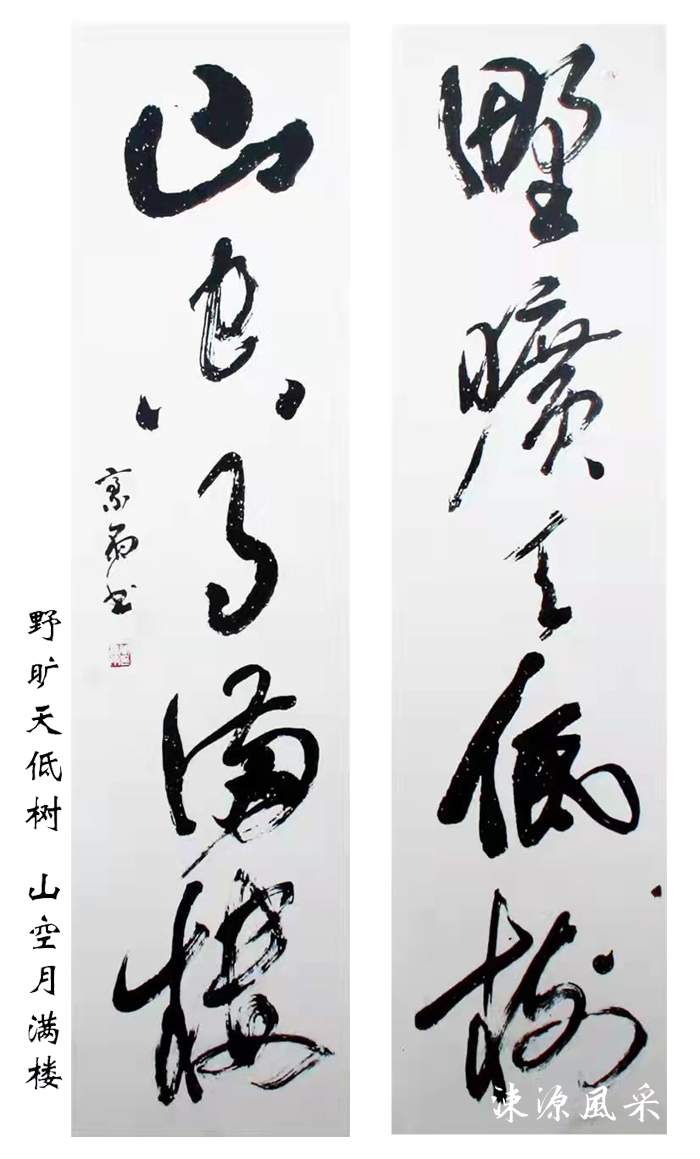 野曠天低樹
山空月滿樓
野旷天低树 山空月满楼
涑源風采